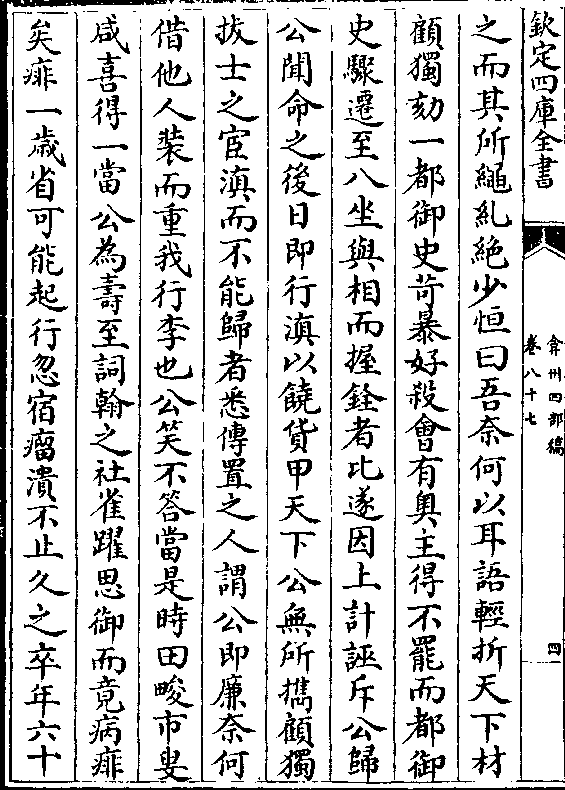 欽定四庫全書
弇州四部稿
卷八十七
四
之而其所繩糺絶少恒曰吾奈何以耳語輕折天下材
顧獨劾一都御史苛暴好殺會有奥主得不罷而都御
史驟遷至八坐與相而握銓者比遂因上計誣斥公歸
公聞命之後日即行滇以饒貨甲天下公無所擕顧獨
拔士之宦滇而不能歸者悉傳置之人謂公即廉奈何
借他人裝而重我行李也公笑不答當是時田畯市叟
咸喜得一當公為壽至詞翰之社雀躍思御而竟病痱
矣痱一歲省可能起行忽宿瘤潰不止久之卒年六十